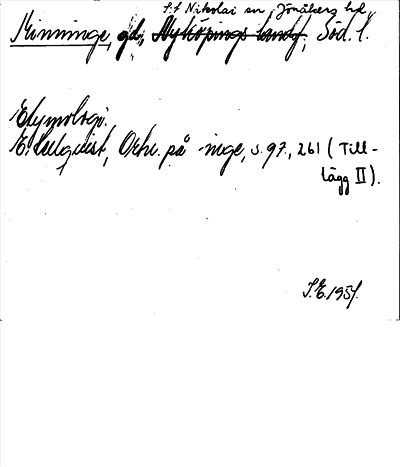 S:t Nikolai sn, Jönåkers hd,
Minninge, gd, Nyköpings landsf., Söd. l.
Etymologi:
E. Hellquist, Ortn. på -inge, s. 97, 261 (Till-
lägg II).
S.E. 1951.